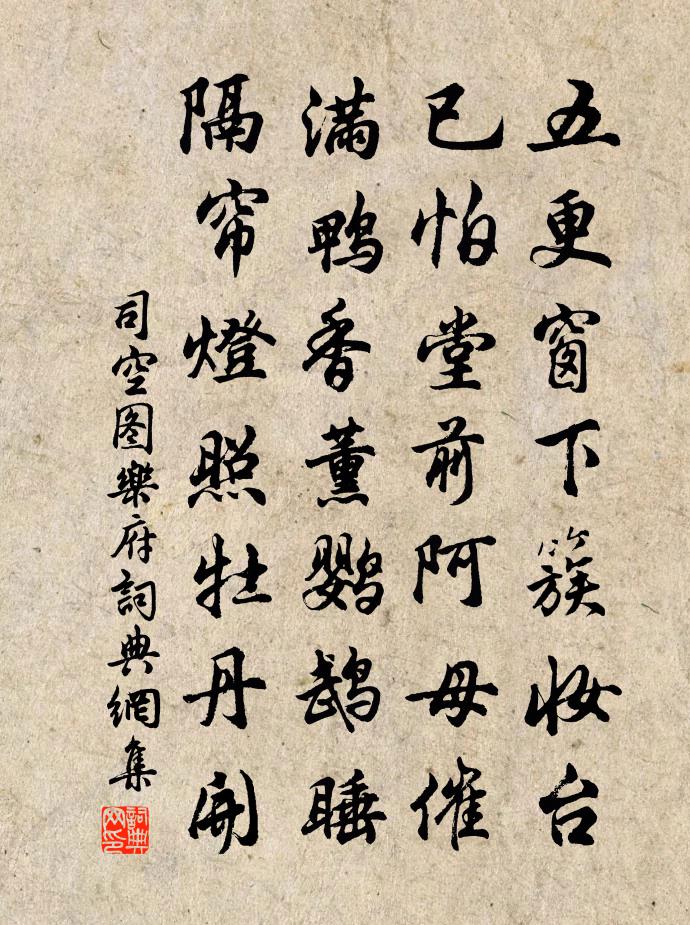 五更窗下簇妆台
已怕堂前阿母催
满鸭香薰鹦鹉睡
隔帘燈照牡丹开
司空图樂府詞典網集
詞典网印